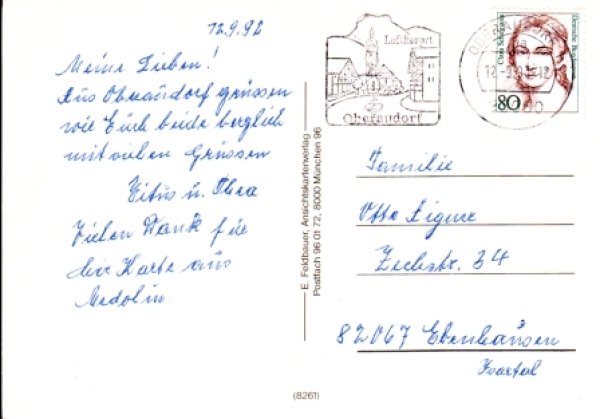 12.9.92
Meine Lieben!
Aus Oberaudorf grüssen
wir Euch beide herzlich
mit vielen Grüssen
Vitus u. Thea
Vielen Dank für
die Karte aus
Medolin.
E. Feldbauer, Ansichtskartenverlag
Postfach 96 01 72, 8000 München 96
Luftkurort
Oberaudorf
12.-9.92-12
Deutsche Bundespost
80
Familie
Otto
Zechstr. 34
82067 Ebenhausen
Isartal
(8261)